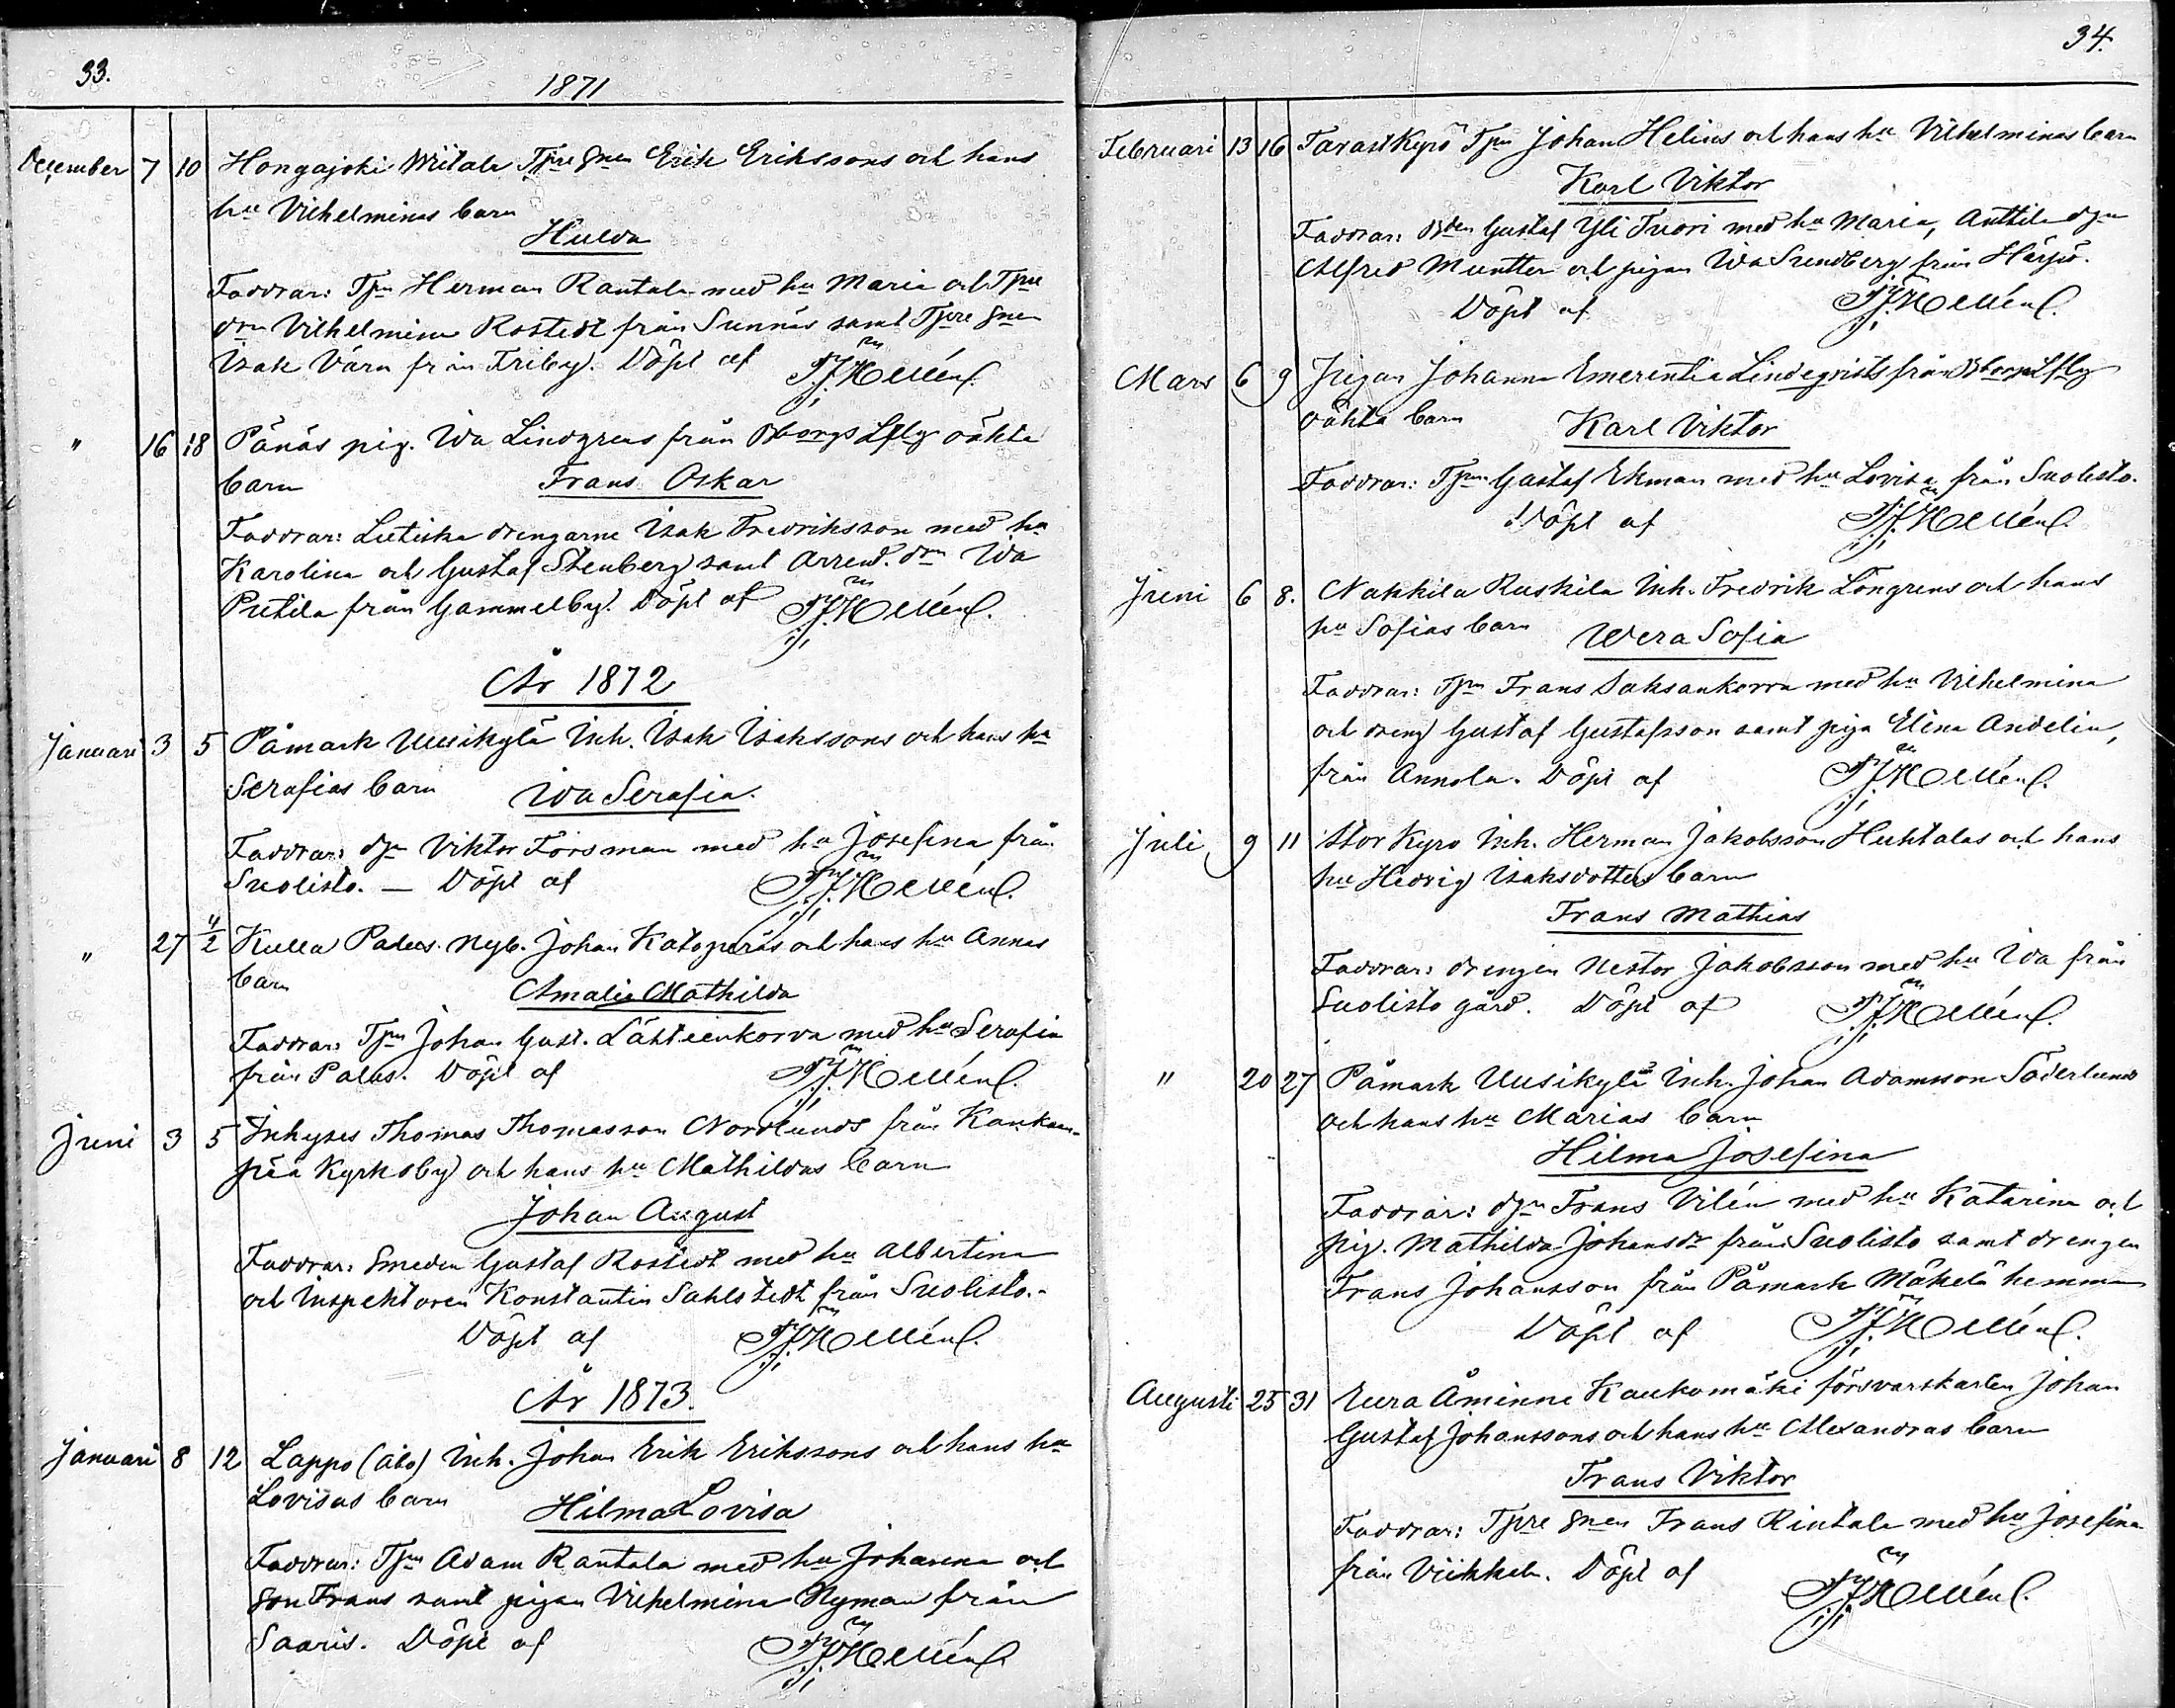 33.
1871
December 7 10 Hongajoki Wiitala Tpre sne Erik Erikssons och hans
hu Vilhelminas barn
Hulda
Faddrar: Tpn Herman Rantala med hu Maria och Tpre
drn Vilhelmina Rostedt från Sunnäs samt Tpre sne
Isak Värn från Friby. Döpt af F.J. Hellén.
" 16 18 Pånäs pig. Ida Lindgrens från Bborgs Lfg oäkta
barn Frans Oskar
Faddrar: Luetiska drengarne Isak Fredriksson med hu
Karolina och Gustaf Stenberg samt Arrend. drn Ida
Putila från Gammelby. Döpt af F.J. Hellén.
År 1872
Januari 3 5 Påmark Uusikylä Inh. Isak Isakssons och hans hu
Serafias barn Ida Serafia.
Faddrar: dgn Viktor Forsman med hu Josefina från
Suolisto. — Döpt af F.J. Hellén.
" 27 4/2 Kulla Palus. Nyb. Johan Katoperäs och hans hu Annas
barn Amalia Mathilda
Faddrar: Tpn Johan Gust. Lähteenkorva med hu Serafia
från Palus. Döpt af F.J. Hellén.
Juni 3 5 Inhyses Thomas Thomasson Nordlunds från Kankaan-
pää Kyrkoby och hans hu Mathildas barn
Johan August
Faddrar: Smeden Gustaf Rostedt med hu Albertina
och Inspektoren Konstantin Sahlstedt från Suolisto.
Döpt af F.J. Hellén.
År 1873.
Januari 8 12 Lappo (Åbo) Inh. Johan Erik Erikssons och hans hu
Lovisas barn Hilma Lovisa
Faddrar: Tpn Adam Rantala med hu Johanna och
son Frans samt pigan Vilhelmina Nyman från
Saaris. Döpt af F.J. Hellén.
34.
Februari 13 16 Tavastkyrö Tpn Johan Helins och hans hu Vilhelminas barn
Karl Viktor
Faddrar: Bden Gustaf Yli Tuori med hu Maria, Anttila dgn
Alfred Muntter och pigan Ida Sundberg från Härpö.
Döpt af F.J. Hellén.
Mars 6 9 Pigan Johanna Emerentia Lindeqvists från Bborgs Lfg
oäkta barn Karl Viktor
Faddrar: Tpn Gustaf Ekman med hu Lovisa från Suolisto.
Döpt af F.J. Hellén.
Juni 6 8. Nakkila Ruskila Inh. Fredrik Löngrens och hans
hu Sofias barn Wera Sofia
Faddrar: Tpn Frans Saksankorva med hu Vilhelmina
och dreng Gustaf Gustafsson samt piga Elina Andelin,
från Annola. Döpt af F.J. Hellén.
Juli 9 11 Stor Kyro Inh. Herman Jakobsson Huhtalas och hans
hu Hedvig Isaksdotters barn
Frans Mathias
Faddrar: drengen Nestor Jakobsson med hu Ida från
Suolisto gård. Döpt af F.J. Hellén.
" 20 27 Påmark Uusikylä Inh. Johan Adamsson Söderlunds
och hans hu Marias barn
Hilma Josefina
Faddrar: dgn Frans Vilén med hu Katarina och
pig. Mathilda Johansdr från Suolisto samt drengen
Frans Johansson från Påmark Mäkelä hemman
Döpt af F.J. Hellén.
Augusti 25 31 Eura Åminne Kaukomäki försvarskarlen Johan
Gustaf Johanssons och hans hu Alexandras barn
Frans Viktor
Faddrar: Tpre sne Frans Rintala med hu Josefina
från Viikkala. Döpt af F.J. Hellén.